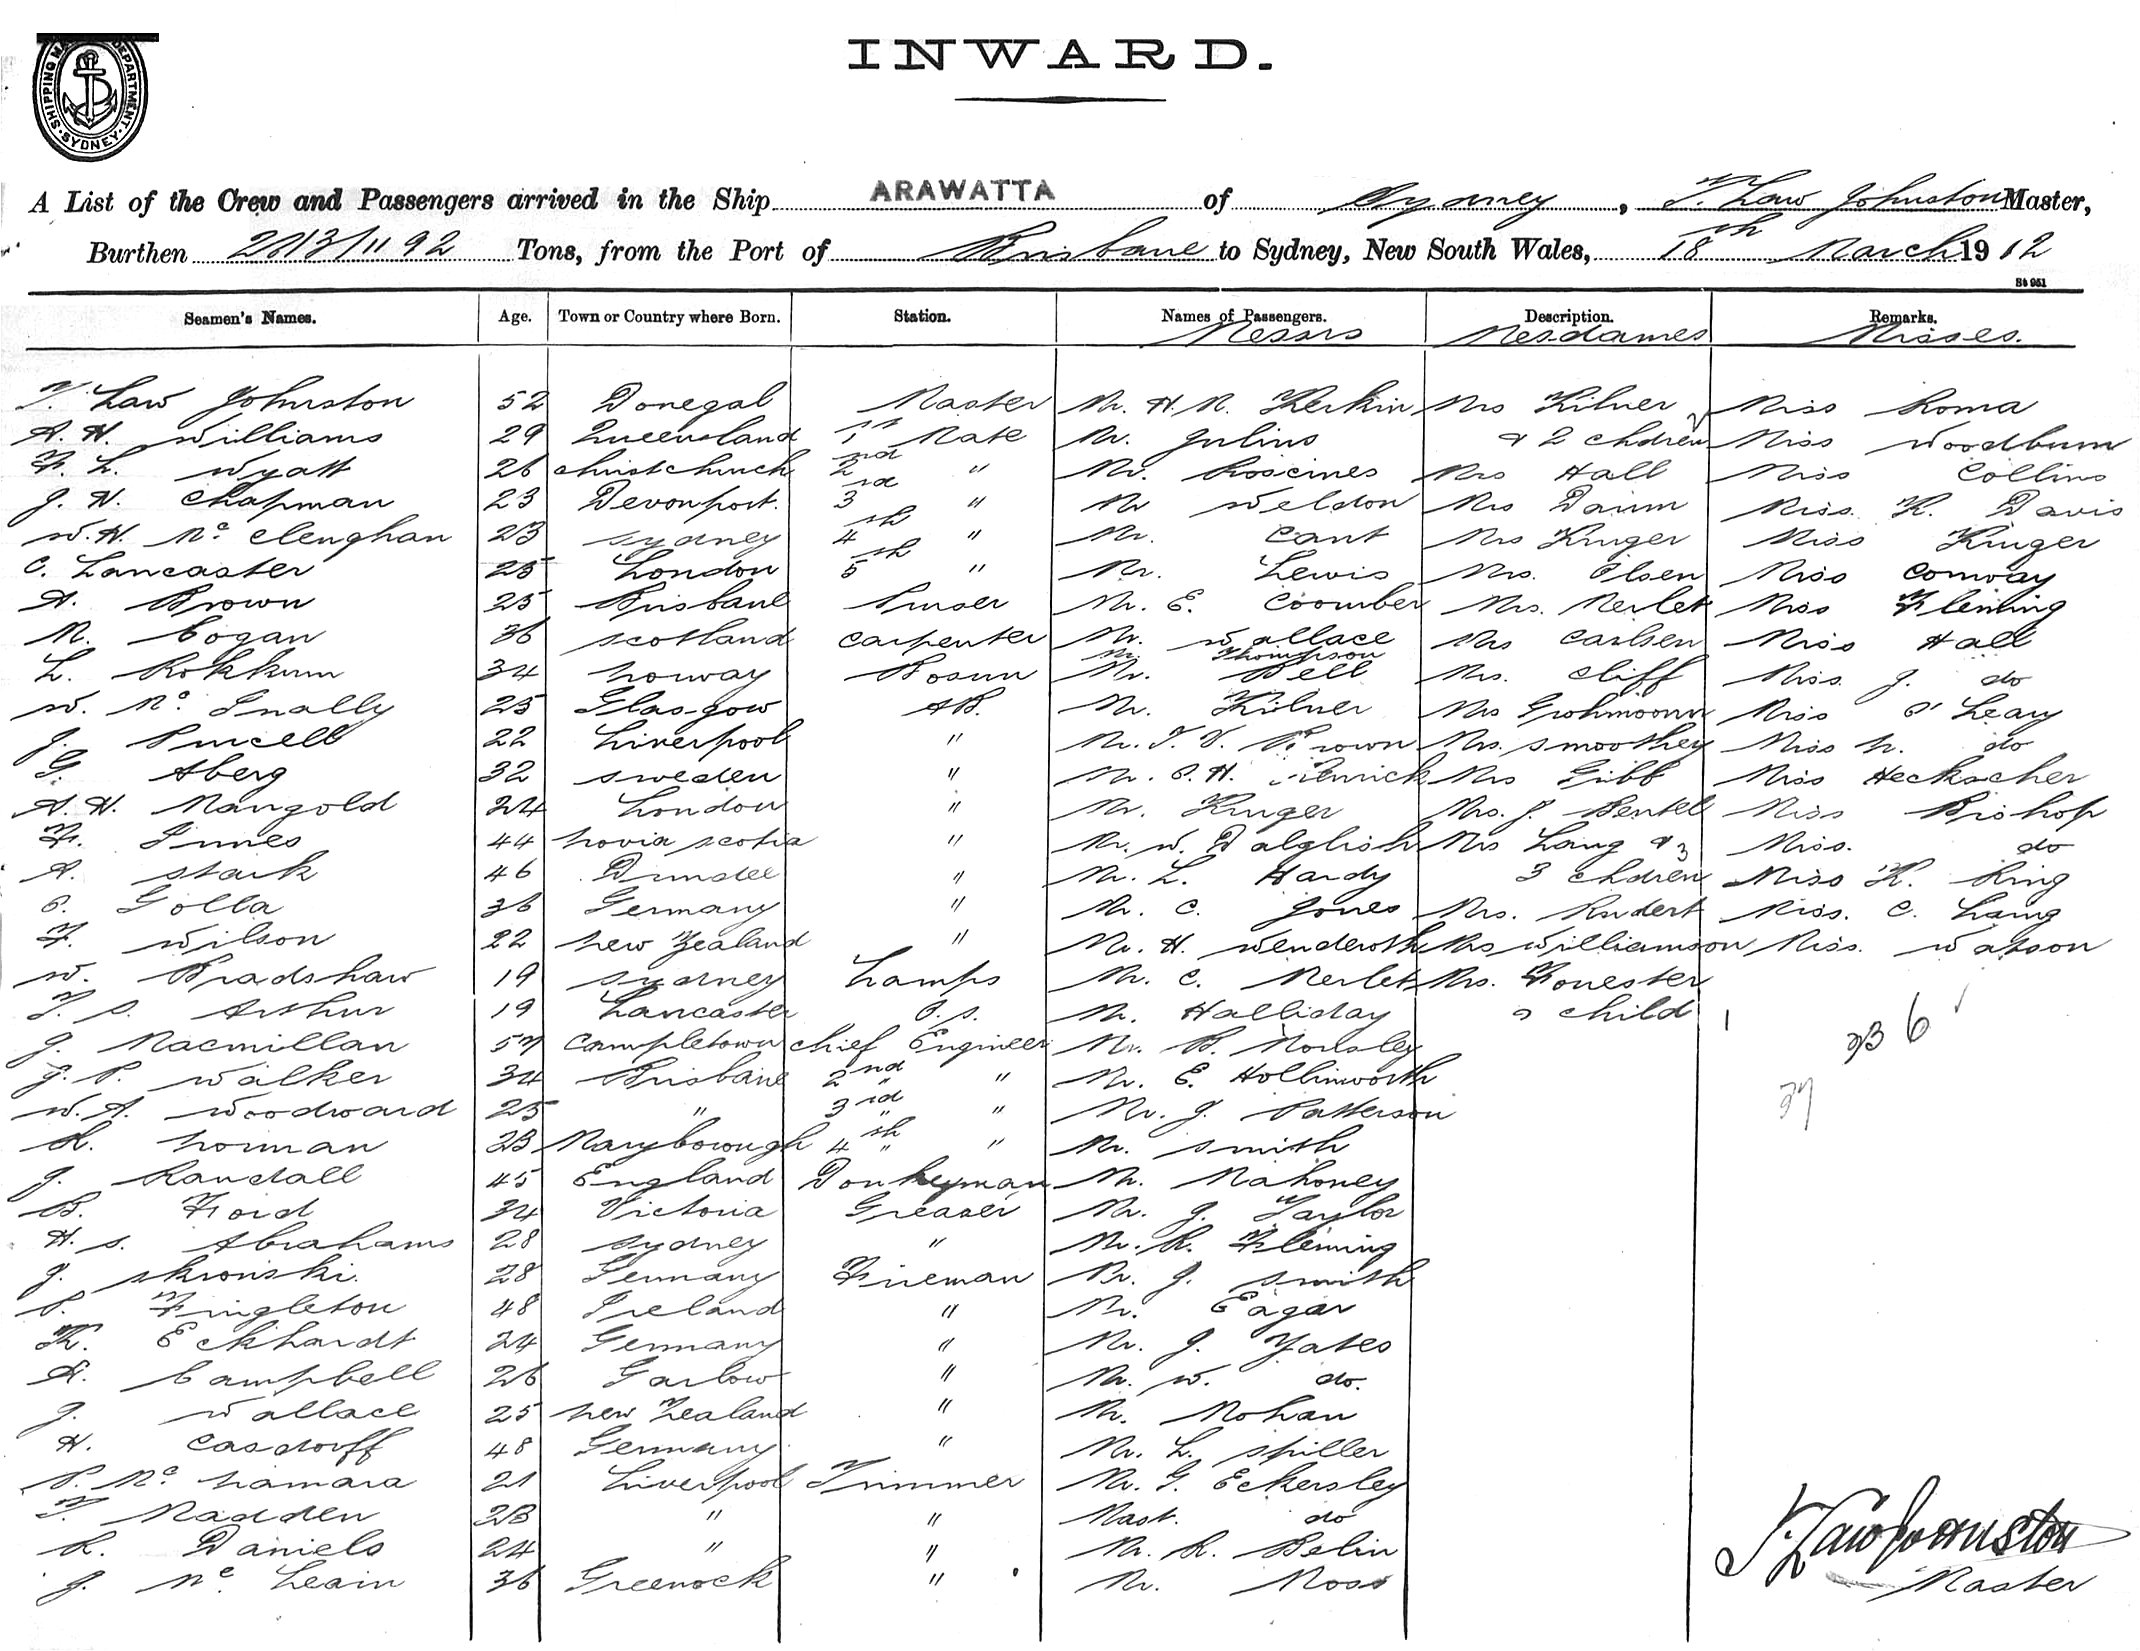 INWARD.
SHIPPING DEPARTMENT. SYDNEY
A List of the Crew and Passengers arrived in the Ship ARAWATTA of Sydney, T. Law Johnston Master,
Burthen Tons, from the Port of Brisbane to Sydney, New South Wales, 18th March 1912
St 951
Seamen's Names. Age. Town or Country where Born. Station. Names of Passengers. Description. Remarks.
Messrs Mesdames Misses.
T. Law Johnston 52 Donegal Master Mr. H. M. Kerkin Mrs Kilner Miss Roma
A. H. Williams 29 Queensland 1st Mate Mr. Julius & 2 chdren Miss Woodburn
F. L. Wyatt 26 Christchurch 2nd " Mr. Roscines Mrs Hall Miss Collins
J. H. Chapman 23 Devonport. 3rd " Mr Weldon Mrs Daum Miss. K. Davis
W. H. Mc Clenghan 23 Sydney 4th " Mr. Cant Mrs Kruger Miss Kruger
C. Lancaster 25 London 5th " Mr. Lewis Mrs. Olsen Miss Conway
A. Brown 25 Brisbane Purser Mr. E. Coomber Mrs. Merlet Miss Fleming
M. Cogan 36 Scotland Carpenter Mr. Wallace Mrs Carlsen Miss Hall
Mr. Thompson
L. Rokkum 34 Norway Bosun Mr. Bell Mrs. Cliff Miss. J. do
W. Mc. Inally 25 Glasgow AB. Mr. Kilner Mrs Miss O'Leary
J. Purcell 22 Liverpool " Mr. T. V. Brown Mrs. Smoothey Miss N. do
G. Aberg 32 Sweden " Mr. O. H. Mrs Gibb Miss Heckscher
A. H. Mangold 24 London " Mr. Kruger Mrs. J. Bentel Miss Bishop
F. Innes 44 Novia Scotia " Mr. W. Dalglish Mrs Lang & 3 Miss. do
A. Stark 46 Dundee " Mr. L. Hardy 3 chdren Miss K. King
O. Golla 36 Germany " Mr. C. Jones Mrs. Rudert Miss. C. Lang
F. Wilson 22 New Zealand " Mr. H. Wenderoth Mrs Williamson Miss. Watson
W. Bradshaw 19 Sydney Lamps Mr. C. Merlet Mrs. Forrester
T. S. Arthur 19 Lancaster O.S. Mr. Halliday child 1
J. Macmillan 57 Campletown Chief Engineer Mr. B. Mousley 6
J. P. Walker 34 Brisbane 2nd " Mr. E. Hollinworth
W. A. Woodward 25 " 3rd " Mr. J. Patterson 37
R. Norman 23 Maryborough 4th " Mr. Smith
J. Randall 45 England Donkeyman Mr. Mahoney
B. Ford 34 Victoria Greaser Mr. J. Taylor
H. S. Abrahams 28 Sydney " Mr. R. Fleming
J. Skronski. 28 Germany Fireman Mr. J. Smith
P. Fingleton 48 Ireland " Mr. Eagar
K. Eckhardt 24 Germany " Mr. J. Yates
A. Campbell 26 Garlow " Mr. W. do.
J. Wallace 25 New Zealand " Mr. Mohan
H. Casdorff 48 Germany " Mr. L. Spiller
P. Mc Namara 21 Liverpool Trimmer Mr. G. Eckersley
T. Madden 23 " " Mast. do
R. Daniels 24 " " Mr. R. Belin
J. Mc Leain 36 Greenock " Mr. Moss
T. Law Johnston
Master